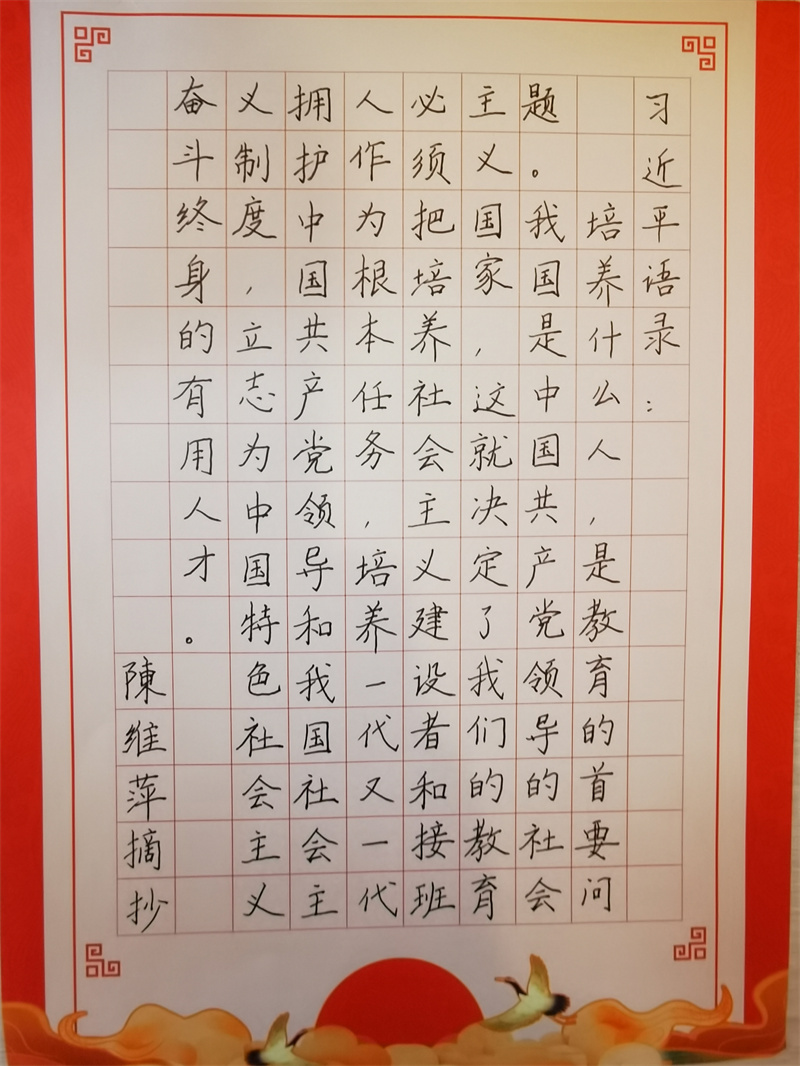 习近平语录：
培养什么人，是教育的首要问
题。我国是中国共产党领导的社会
主义国家，这就决定了我们的教育
必须把培养社会主义建设者和接班
人作为根本任务，培养一代又一代
拥护中国共产党领导和我国社会主
义制度，立志为中国特色社会主义
奋斗终身的有用人才。
陳维萍摘抄